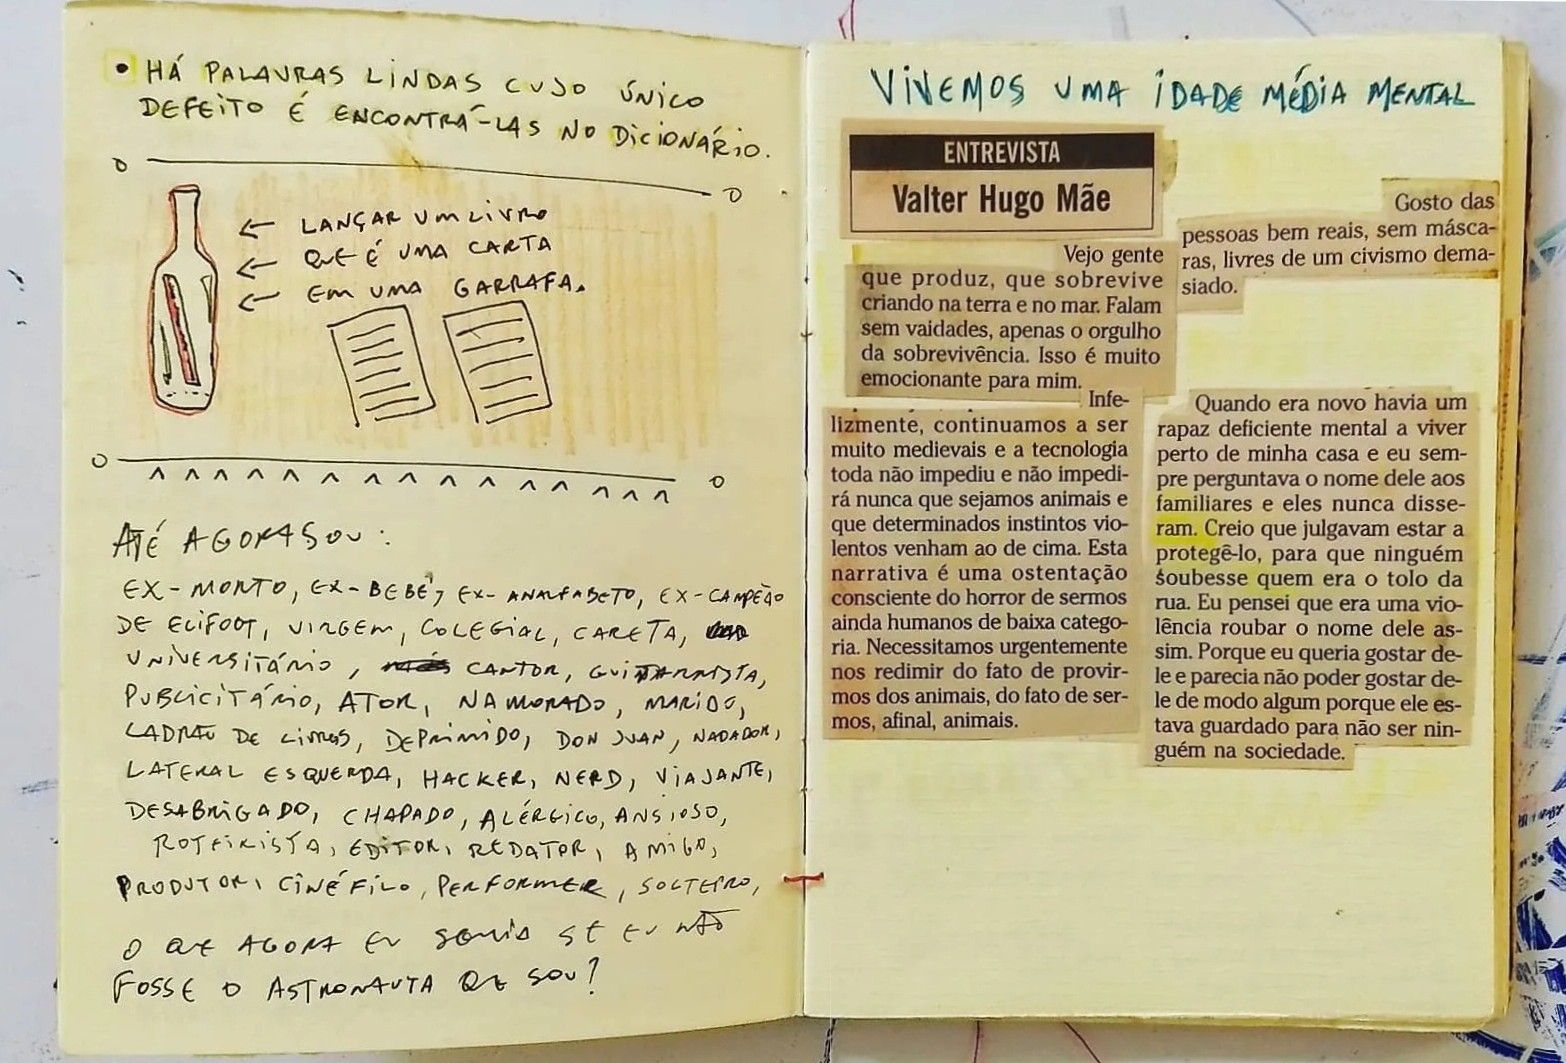 • HÁ PALAVRAS LINDAS CUJO ÚNICO
DEFEITO É ENCONTRÁ-LAS NO DICIONÁRIO.
← LANÇAR UM LIVRO
← QUE É UMA CARTA
← EM UMA GARRAFA.
ATÉ AGORA SOU:
EX-MORTO, EX-BEBÊ, EX-ANALFABETO, EX-CAMPEÃO
DE ELIFOOT, VIRGEM, COLEGIAL, CARETA,
UNIVERSITÁRIO, CANTOR, GUITARRISTA,
PUBLICITÁRIO, ATOR, NAMORADO, MARIDO,
LADRÃO DE LIVROS, DEPRIMIDO, DON JUAN, NADADOR,
LATERAL ESQUERDA, HACKER, NERD, VIAJANTE,
DESABRIGADO, CHAPADO, ALÉRGICO, ANSIOSO,
ROTEIRISTA, EDITOR, REDATOR, AMIGO,
PRODUTOR, CINÉFILO, PERFORMER, SOLTEIRO,
O QUE AGORA EU SERIA SE EU NÃO
FOSSE O ASTRONAUTA QUE SOU?
VIVEMOS UMA IDADE MÉDIA MENTAL
ENTREVISTA
Valter Hugo Mãe
Vejo gente
que produz, que sobrevive
criando na terra e no mar. Falam
sem vaidades, apenas o orgulho
da sobrevivência. Isso é muito
emocionante para mim.
Infe-
lizmente, continuamos a ser
muito medievais e a tecnologia
toda não impediu e não impedi-
rá nunca que sejamos animais e
que determinados instintos vio-
lentos venham ao de cima. Esta
narrativa é uma ostentação
consciente do horror de sermos
ainda humanos de baixa catego-
ria. Necessitamos urgentemente
nos redimir do fato de provir-
mos dos animais, do fato de ser-
mos, afinal, animais.
Gosto das
pessoas bem reais, sem másca-
ras, livres de um civismo dema-
siado.
Quando era novo havia um
rapaz deficiente mental a viver
perto de minha casa e eu sem-
pre perguntava o nome dele aos
familiares e eles nunca disse-
ram. Creio que julgavam estar a
protegê-lo, para que ninguém
soubesse quem era o tolo da
rua. Eu pensei que era uma vio-
lência roubar o nome dele as-
sim. Porque eu queria gostar de-
le e parecia não poder gostar de-
le de modo algum porque ele es-
tava guardado para não ser nin-
guém na sociedade.